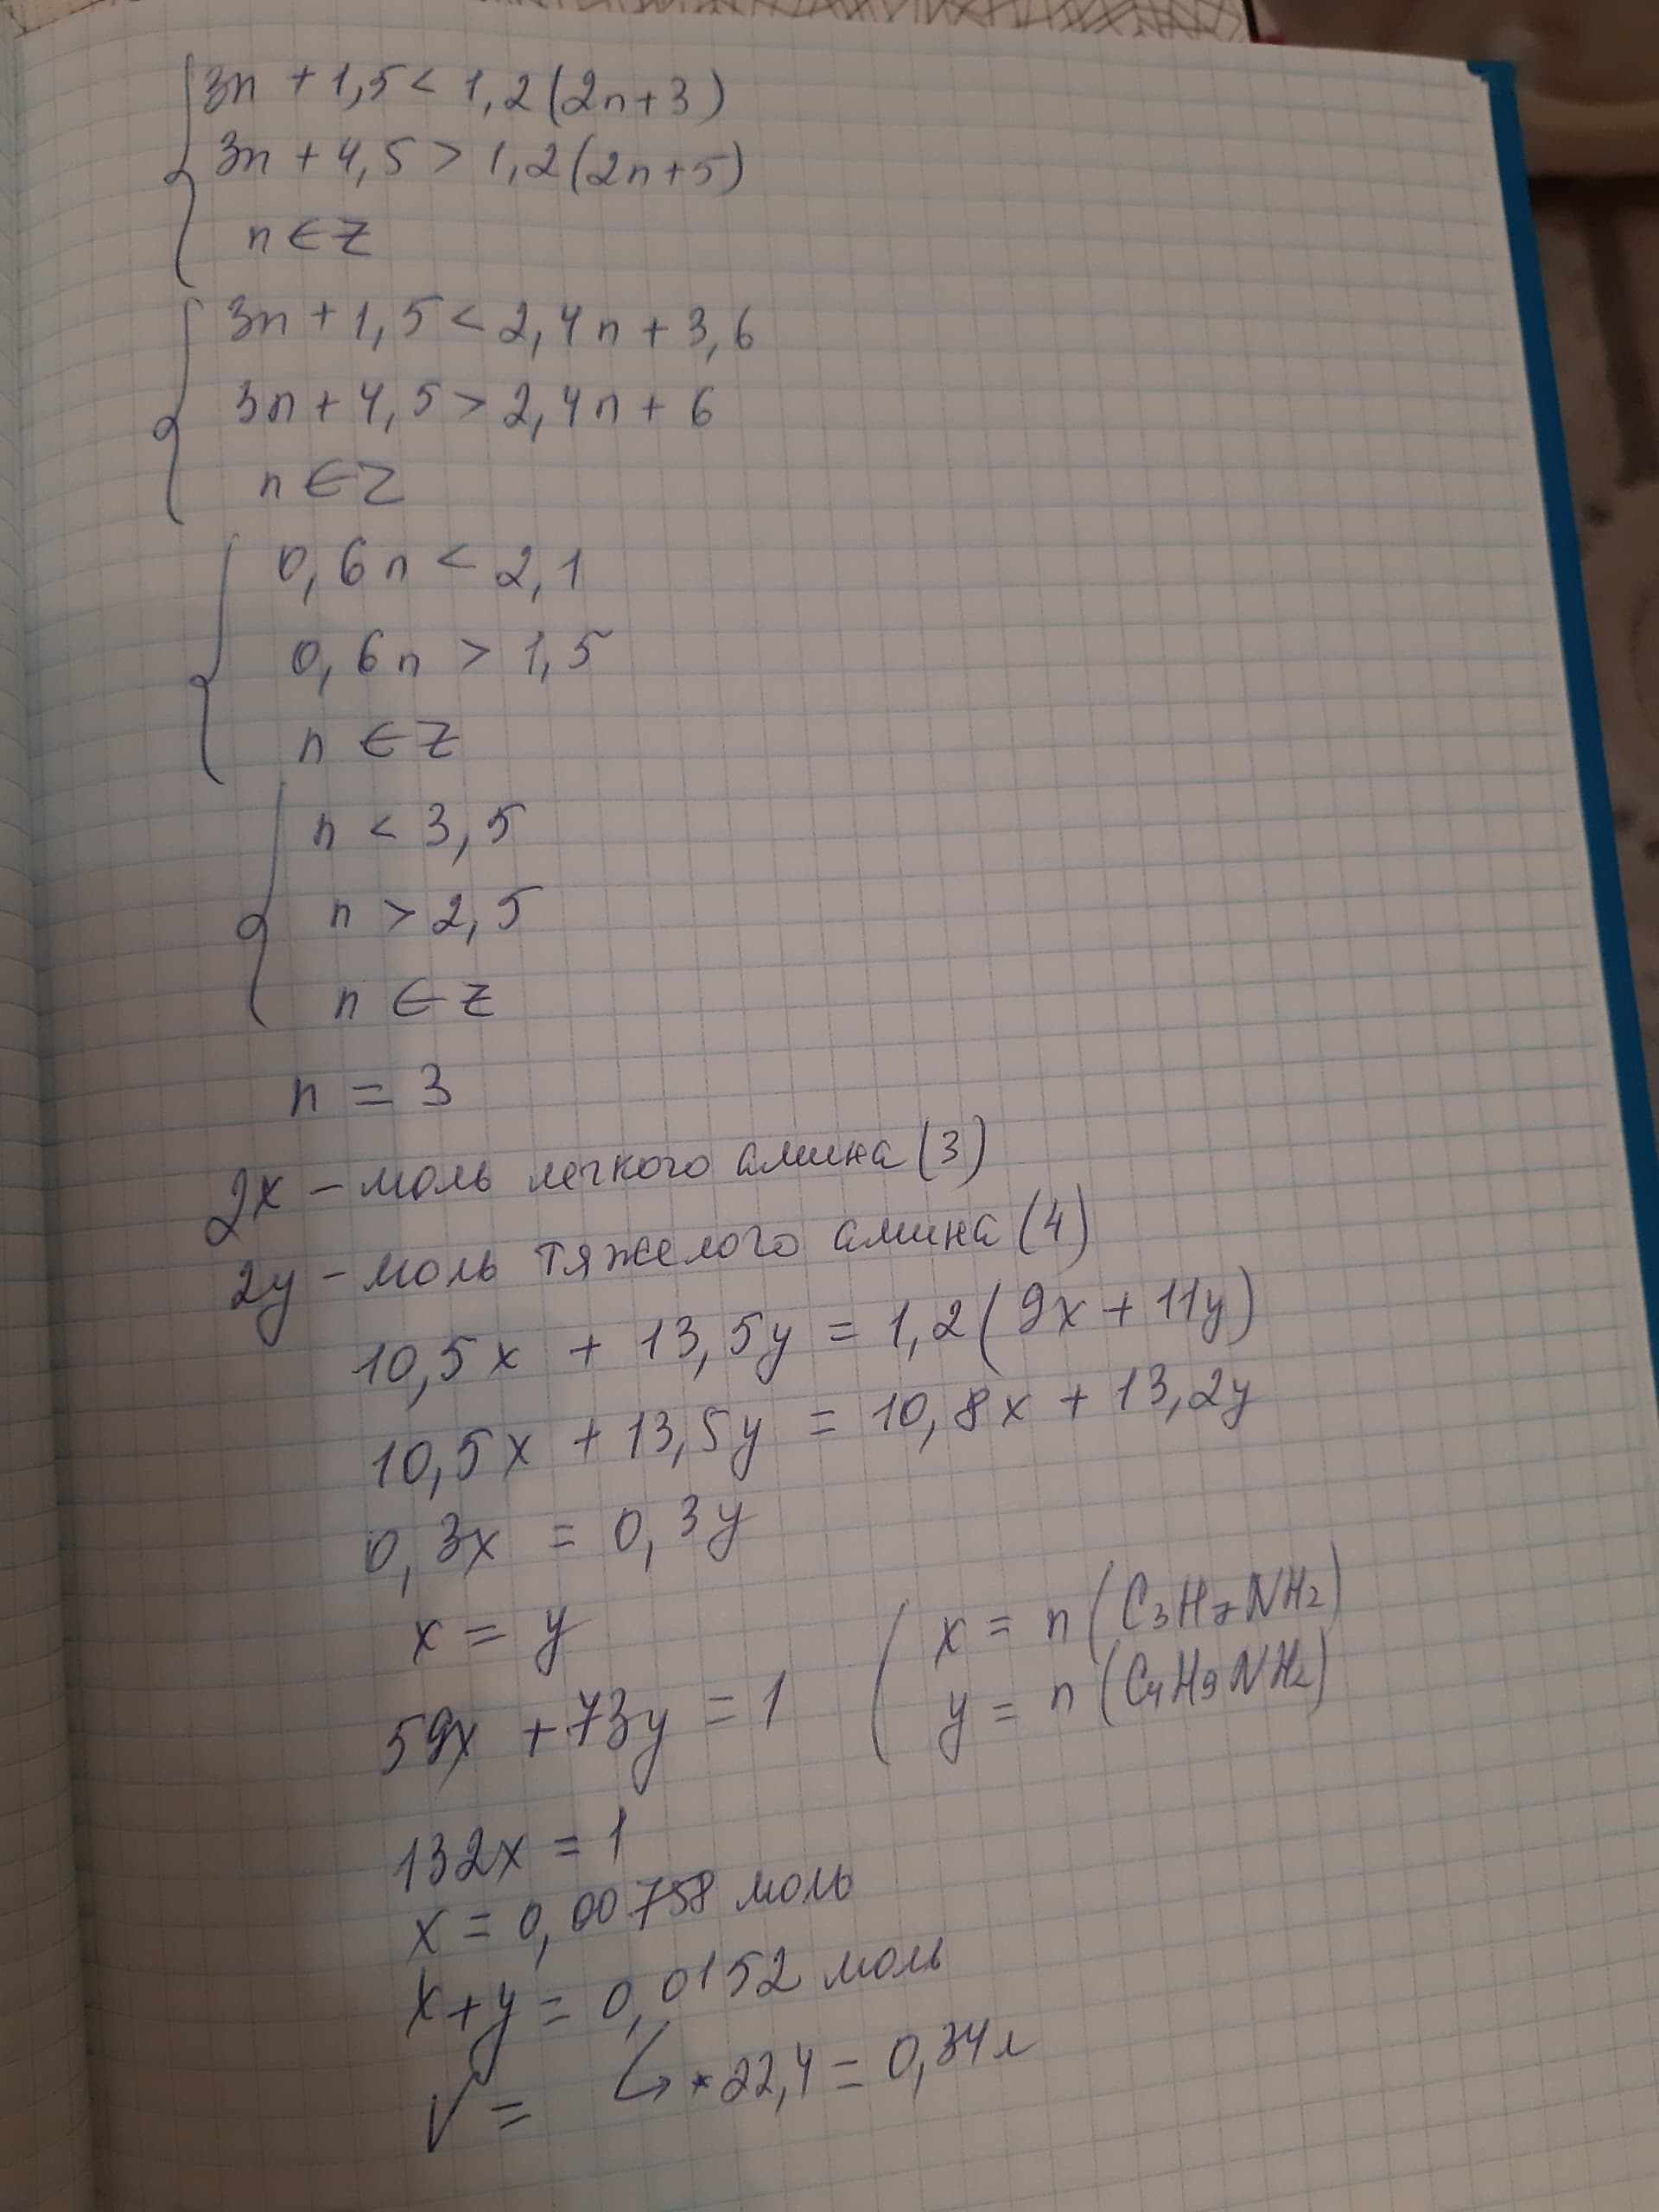 3n + 1,5 < 1,2(2n+3)
3n + 4,5 > 1,2(2n+5)
n ∈ Z
3n + 1,5 < 2,4n + 3,6
3n + 4,5 > 2,4n + 6
n ∈ Z
0,6n < 2,1
0,6n > 1,5
n ∈ Z
n < 3,5
n > 2,5
n ∈ Z
n = 3
2x – моль легкого амина (3)
2y – моль тяжелого амина (4)
10,5x + 13,5y = 1,2(9x + 11y)
10,5x + 13,5y = 10,8x + 13,2y
0,3x = 0,3y
x = y
x = n(C3H7NH2)
59x + 73y = 1
y = n(C4H9NH2)
132x = 1
x = 0,00758 моль
x + y = 0,0152 моль
V = ↳ * 22,4 = 0,34л